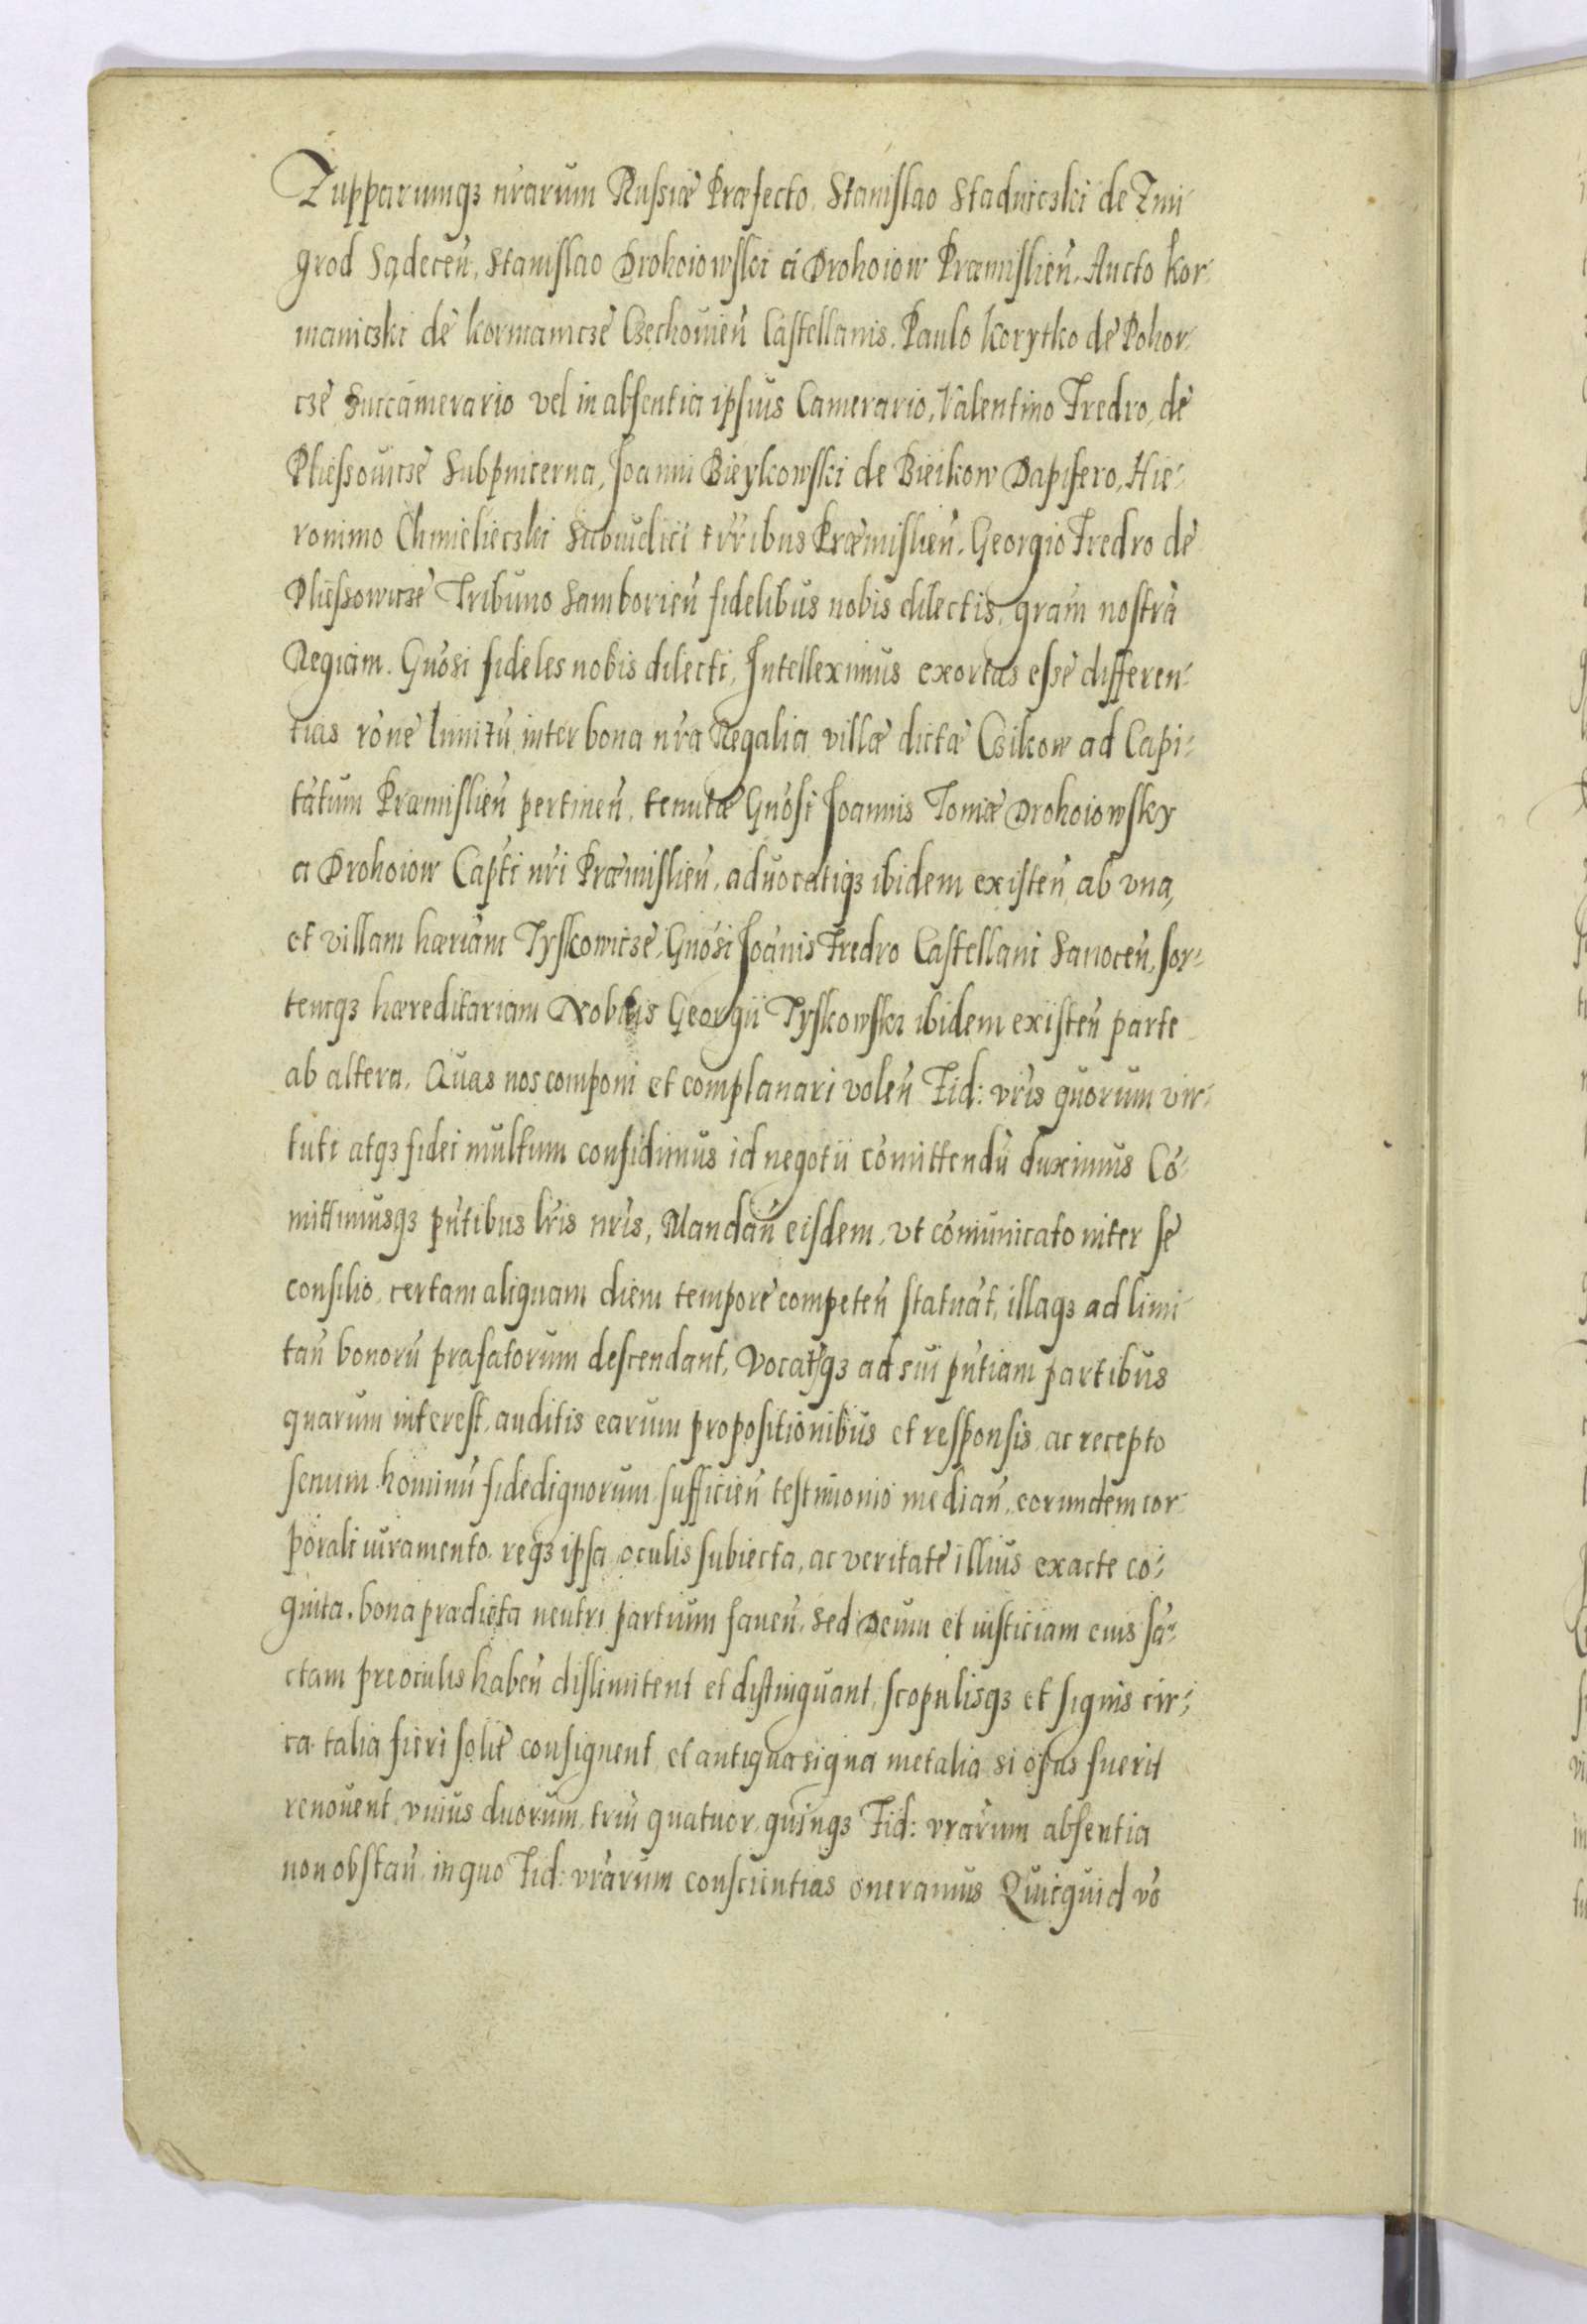 Zupparumqʒ nrarum Russiæ Præfecto, Stanislao Stadniczki de Zmi-
grod Sądecen̄, Stanislao Drohoiowski à Drohoiow Præmislien̄, Aucto Kor-
maniczki de Kormanicze Czechovien̄ Castellanis. Paulo Korytko de Pohor-
cze Succamerario vel in absentia ipsius Camerario, Valentino Fredro, de
Pliessovicze Subpincerna, Joanni Bieykowski de Bieikow Dapifero, Hie-
ronimo Chmielieczki Subiudici trribus Præmislien̄. Georgio Fredro de
Pliessowicze Tribuno Samborien̄ fidelibus nobis dilectis, gram̄ nostrā
Regiam. Gn̄osi fideles nobis dilecti, Intelleximus exortas esse differen-
tias rōne limitū inter bona nr̄a Regalia villæ dictæ Csikow ad Capi-
tatum Præmislien̄ pertinen̄, tenutæ Gn̄osi Joannis Tomæ Drohoiowsky
a Drohoiow Capti nr̄i Præmislien̄, aduocatiqʒ ibidem existen̄ ab vna,
et villam hæriam Tyskowicze, Gnōsi Joānis Fredro Castellani Sanocen̄, sor-
temqʒ hæreditariam Nobilis Georgii Tyskowski ibidem existen̄ parte
ab altera. Quas nos componi et complanari volen̄ Fid: vr̄is quorum vir-
tuti atqʒ fidei multum confidimus id negotii cōmittendū duximus Cō-
mittimusqʒ pn̄tibus lr̄is nr̄is, Mandan̄ eisdem, vt cōmunicato inter se
consilio, certam aliquam diem tempore competen̄ statuāt, illaqʒ ad limi-
tan̄ bonorū præfatorum descendant, Vocatisqʒ ad sui pn̄tiam partibus
quarum interest, auditis earum propositionibus et responsis, ac recepto
senum hominū fidedignorum sufficien̄ testimonio median̄, eorundem cor-
porali iuramento, reqʒ ipsa oculis subiecta, ac veritate illius exacte co-
gnita, bona prædicta neutri partium fauen̄, Sed Deum et iusticiam eius sā-
ctam præ oculis haben̄ dislimitent et distinguant, scopulisqʒ et signis cir-
ca talia fieri solit̄ consignent, et antiqua signa metalia si opus fuerit
renovent, vnius duorum, triū quatuor, quinqʒ Fid: vrārum absentia
non obstan̄, in quo Fid: vrārum conscientias oneramus Quicquid vō